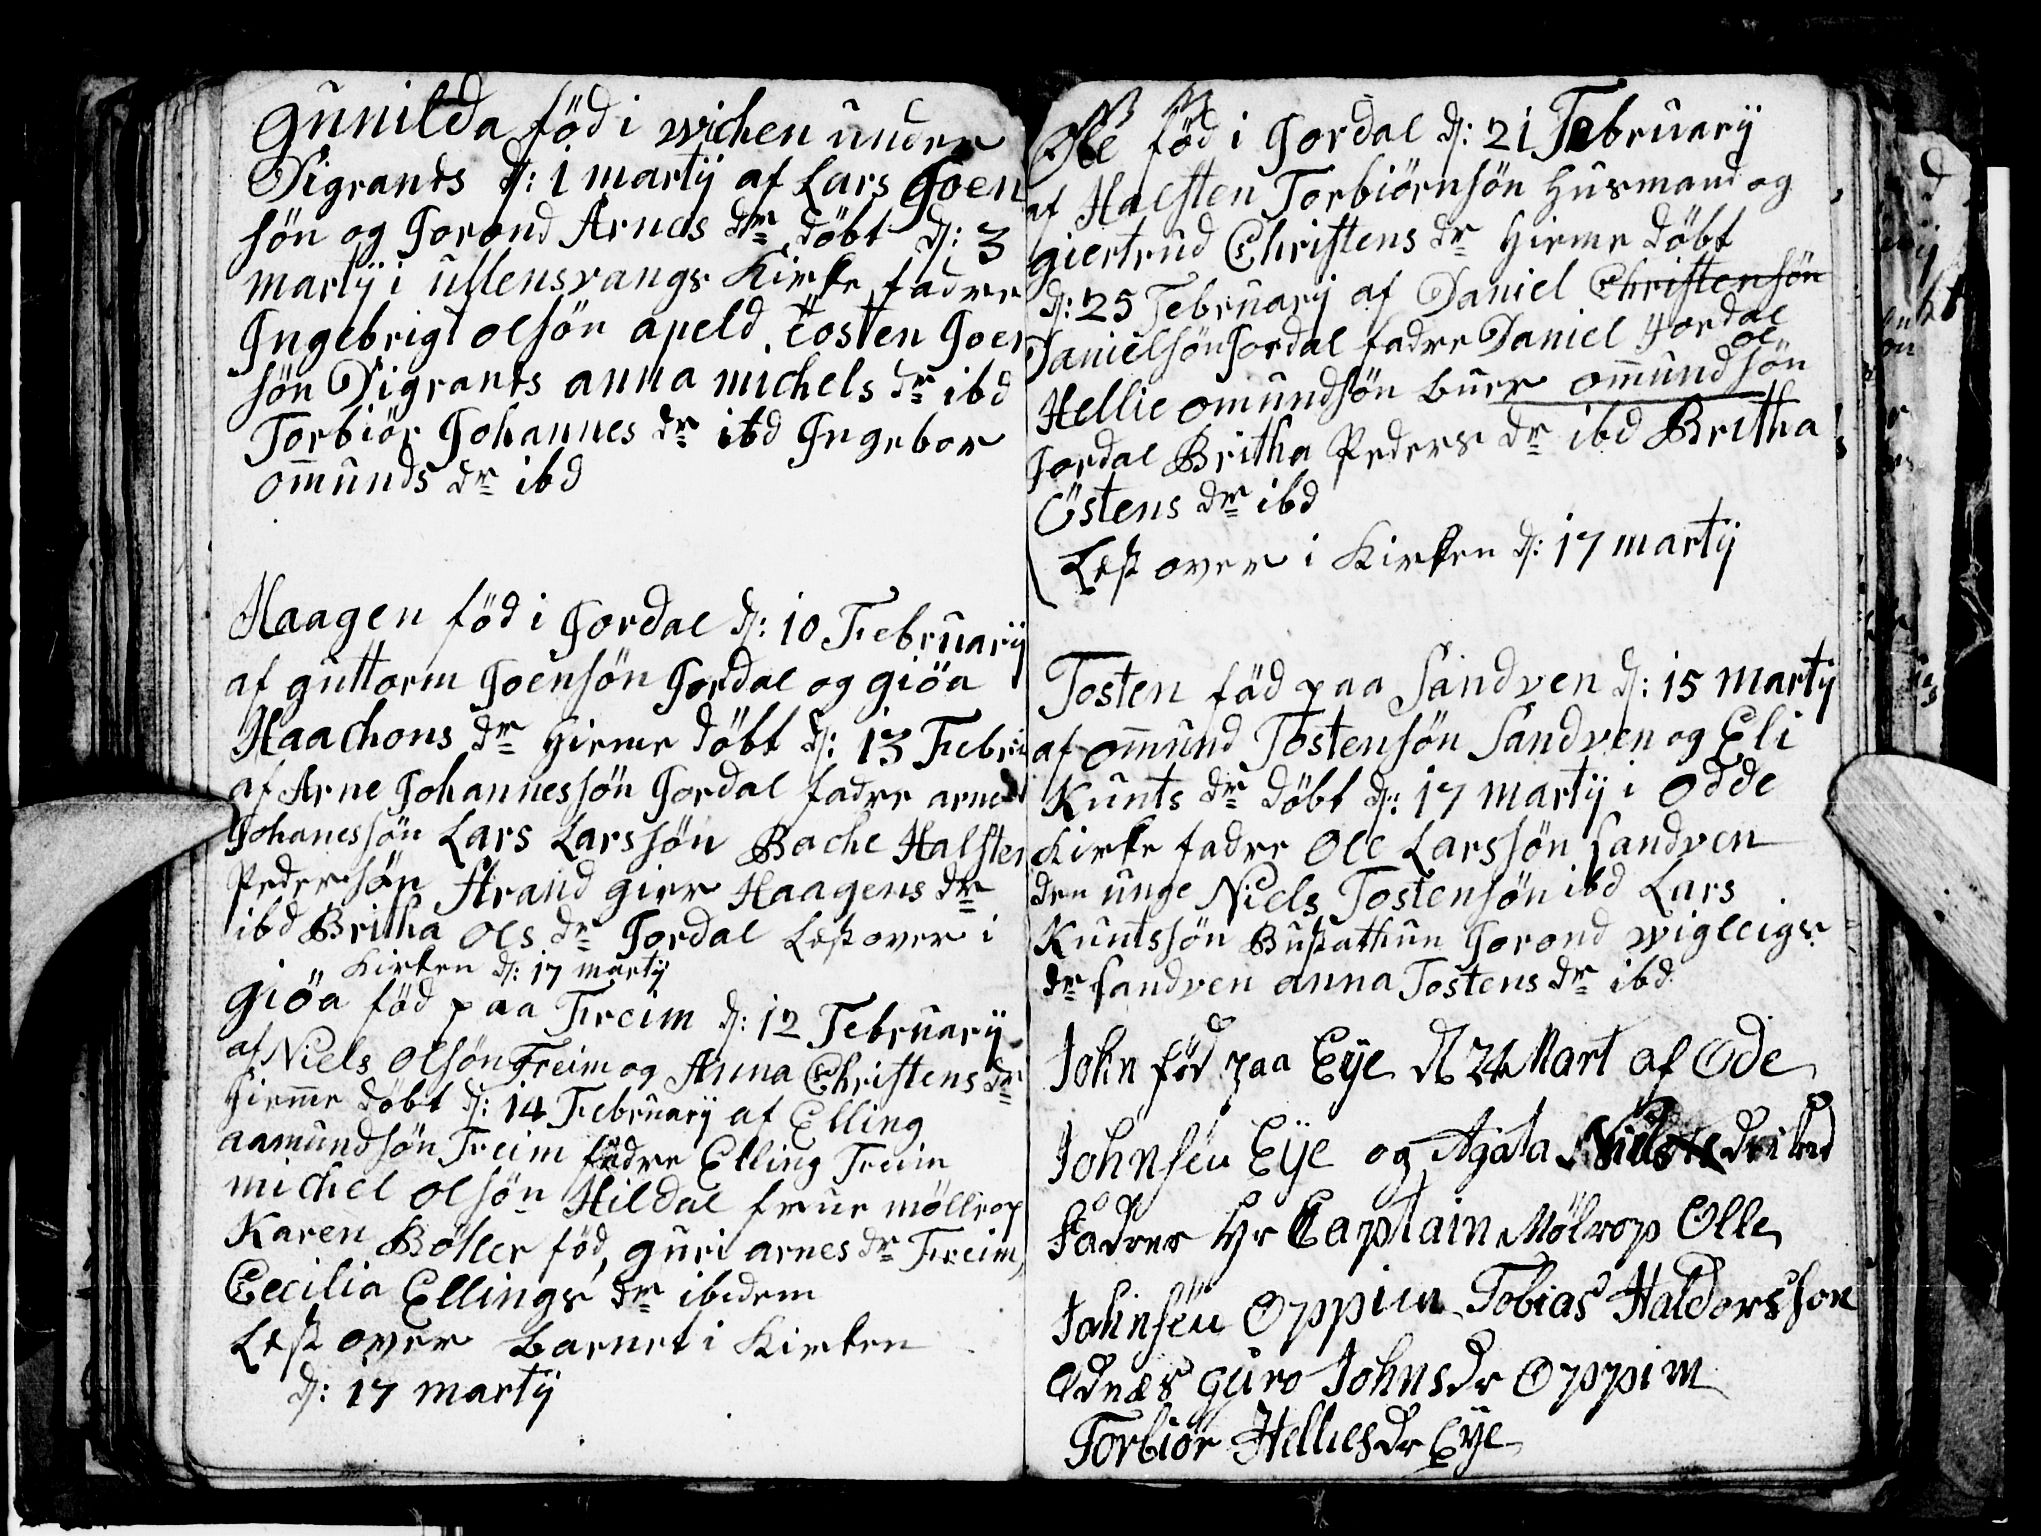 Gunilda föd i wichen under
Digrands d: 1 martij af Lars Joen
sön og Jorond Arnes dr döbt d: 3
martij i ullensvangs Kirke fadre
Ingebrigt olsön apeld, Tosten Joen
sön Digrants anna michels dr ibd
Torbiör Johannes dr ibd Ingebor
omunds dr ibd
Haagen föd i Jordal d: 10 Februarij
af guttorm Joensön Jordal og giöa
Haachons dr hieme döbt d: 13 Febru
af Arne Johannessön Jordal fadre arne
Johanessön Lars Larssön Bache Halsten
Pedersön Strand gier Haagens dr
ibd Britha Ols dr Jordal Lest over i
Kirken d: 17 martij
giöa föd paa Freim d: 12 Februarij
af Niels Olsön Freim og Anna Christens dr
hieme döbt d: 14 Februarij af Elling
aamundsön Freim fadre Elling Freim
michel olsön Hildal frue möllrop
Karen Boller föd, guri arnes dr Freim,
Cecilia Ellings dr ibidem
Lest over barnet i Kirken
d: 17 martij
Ole föd i Jordal d: 21 Februarij
af Halsten Torbiörnsön Husmand og
giertrud Christens dr hieme döbt
d: 25 Februarij af Daniel Christensön
Danielsön Jordal fadre Daniel Jordal
Hellie omundsön buer omund sön
ol
Jordal Britha Peders dr ibd Britha
Östens dr ibd
Lest over i Kirken d: 17 martij
Tosten föd paa Sandven d: 15 martij
af omund Tostensön Sandven og Eli
Kunts dr döbt d: 17 martij i Odde
Kirke fadre Ole Larssön Sandven
den unge Niels Tostensön ibd Lars
Kuntssön Bustathun Jorond wigleigs
dr Sandven anna Tostens dr ibd
John föd paa Eye d 24 Mart af Ode
Johnsen Eije og Agata Niels dr ibid
Fadrer Hr Captain Mölrop Olle
Johnsen Oppim Tobias Haldorsson
Odnæs guro Johnsdr Oppim
Torbiör Helliesdr Eye